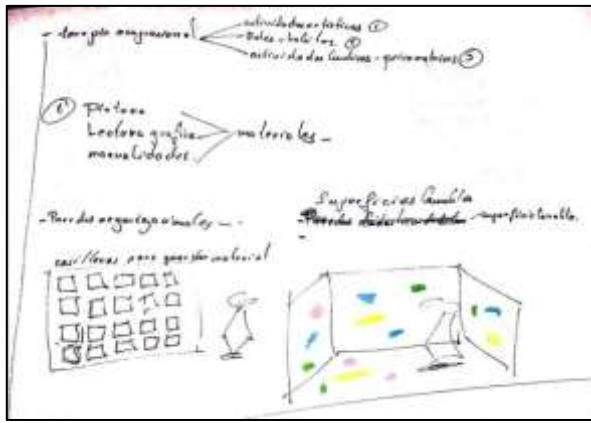 - terapia ocupacional
actividades artisticas ①
Roles - habitos. ②
actividades ludicas - psicomotrices ③
①
Pintura
Lectura grafica
manualidades
materiales -
- Paredes organizacionales - -
casilleros para guardar material
Superficies
- Paredes superficie